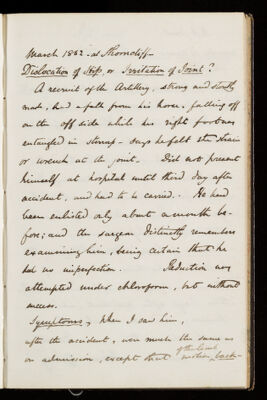 March 1882 - at Shorncliff -
Dislocation of Hip, or Irritation of Joint?
A recruit of the Artillery, strong and stoutly
made, had a fall from his horse, falling off
on the off side while his right foot was
entangled in stirrup - says he felt the strain
or wrench at the joint. Did not present
himself at hospital until third day after
accident, and had to be carried. He had
been enlisted only about a month be-
fore; and the surgeon distinctly remembers
examining him, being certain that he
had no imperfection. Reduction was
attempted under chloroform, but without
success.
Symptoms, when I saw him,
after the accident, were much the same as
on admission, except that motion back-
of the limb